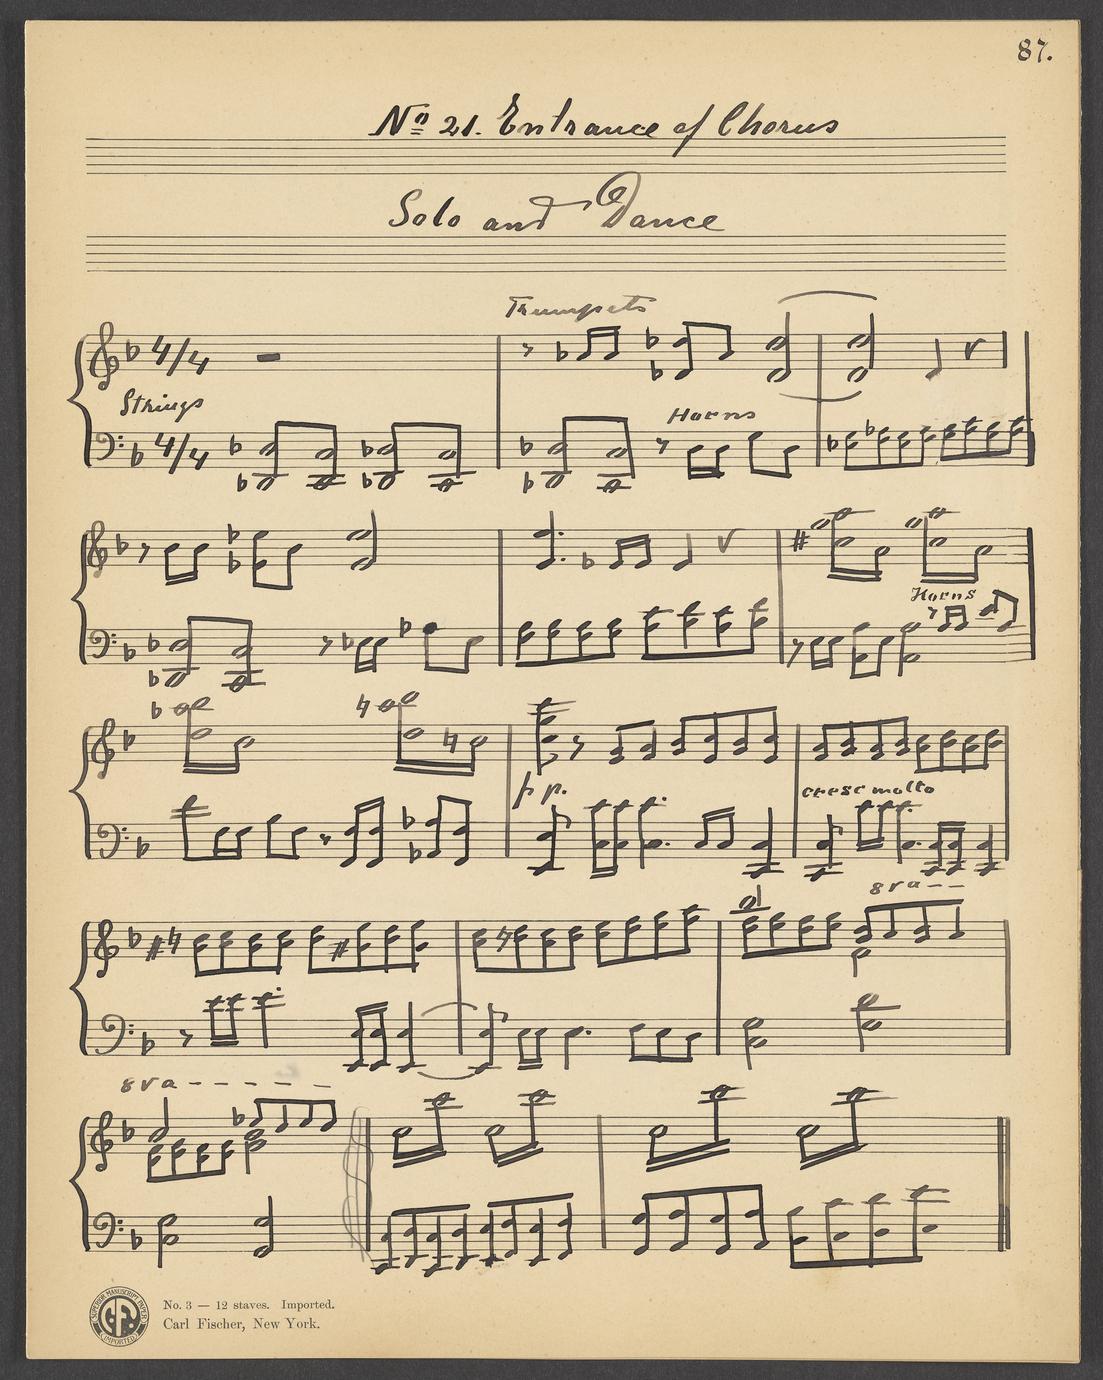 87.
No 21. Entrance of Chorus
Solo and Dance
Trumpets
4/4
Strings
Horns
4/4
Horns
pp.
cresc molto
8va --
8va - - - - -
SUPERIOR MANUSCRIPT PAPER
C.F.
IMPORTED
No. 3 — 12 staves. Imported.
Carl Fischer, New York.